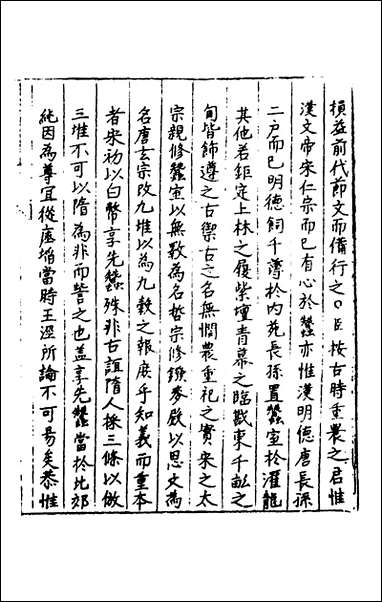 損益前代節文而備行之○臣按古時重農之君惟
漢文帝宋仁宗而已有心於蠶亦惟漢明德唐長孫
二戶而巳明德飼千薄於內苑長孫置蠶室於濯龍
其他若鉅定上林之履紫壇青幕之臨戳東千畝之
甸皆飾遵之古禦古之名無憫農重祀之實宋之太
宗親修蠶室以無斁為名哲宗修鐐麥殿以思文為
名唐玄宗改九堆以為九穀之報庶乎知義而重本
者宋初以白幣享先蠶殊非古誼隋人採三條以倣
三堆不可以隋為非而訾之也盖享先蠶當於北郊
純因為尊宜從廬埳當時王涇所論不可易矣恭惟